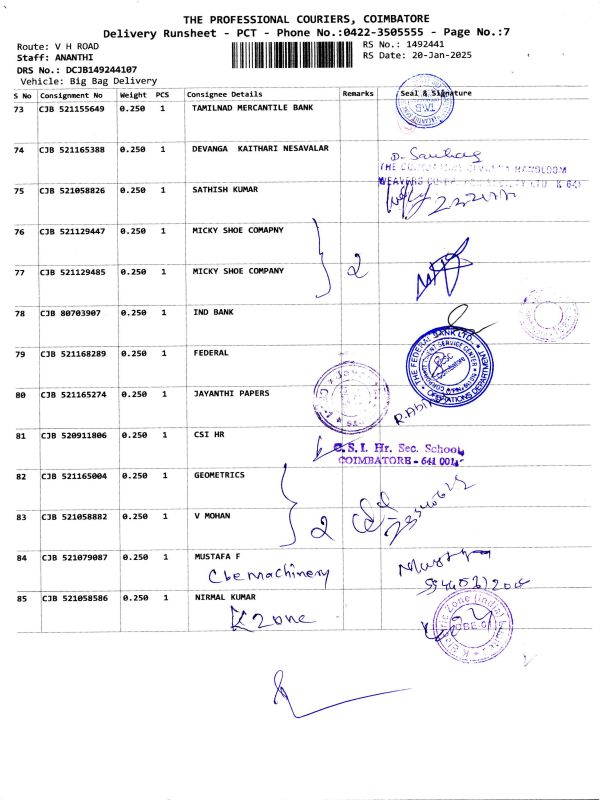 THE PROFESSIONAL COURIERS, COIMBATORE
Delivery Runsheet - PCT - Phone No.:0422-3505555 - Page No.:7
Route: V H ROAD RS No.: 1492441
Staff: ANANTHI RS Date: 20-Jan-2025
DRS No.: DCJB149244107
Vehicle: Big Bag Delivery
S No Consignment No Weight PCS Consignee Details Remarks Seal & Signature
73 CJB 521155649 0.250 1 TAMILNAD MERCANTILE BANK
74 CJB 521165388 0.250 1 DEVANGA KAITHARI NESAVALAR
75 CJB 521058826 0.250 1 SATHISH KUMAR
76 CJB 521129447 0.250 1 MICKY SHOE COMAPNY
77 CJB 521129485 0.250 1 MICKY SHOE COMPANY 2
78 CJB 80703907 0.250 1 IND BANK
79 CJB 521168289 0.250 1 FEDERAL
THE FEDERAL BANK LTD.
OPERATIONS DEPARTMENT
80 CJB 521165274 0.250 1 JAYANTHI PAPERS
81 CJB 520911806 0.250 1 CSI HR
C.S.I. Hr. Sec. School,
COIMBATORE - 641 001.
82 CJB 521165004 0.250 1 GEOMETRICS
83 CJB 521058882 0.250 1 V MOHAN 2
84 CJB 521079087 0.250 1 MUSTAFA F
Cbe machinery
85 CJB 521058586 0.250 1 NIRMAL KUMAR
K zone